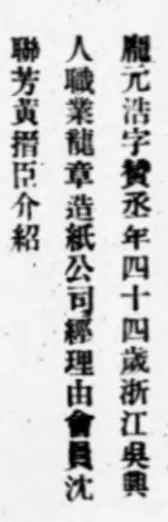 龐元浩字贊丞年四十四歲浙江吳興
人職業龍章造紙公司經理由會員沈
聯芳黃搢臣介紹